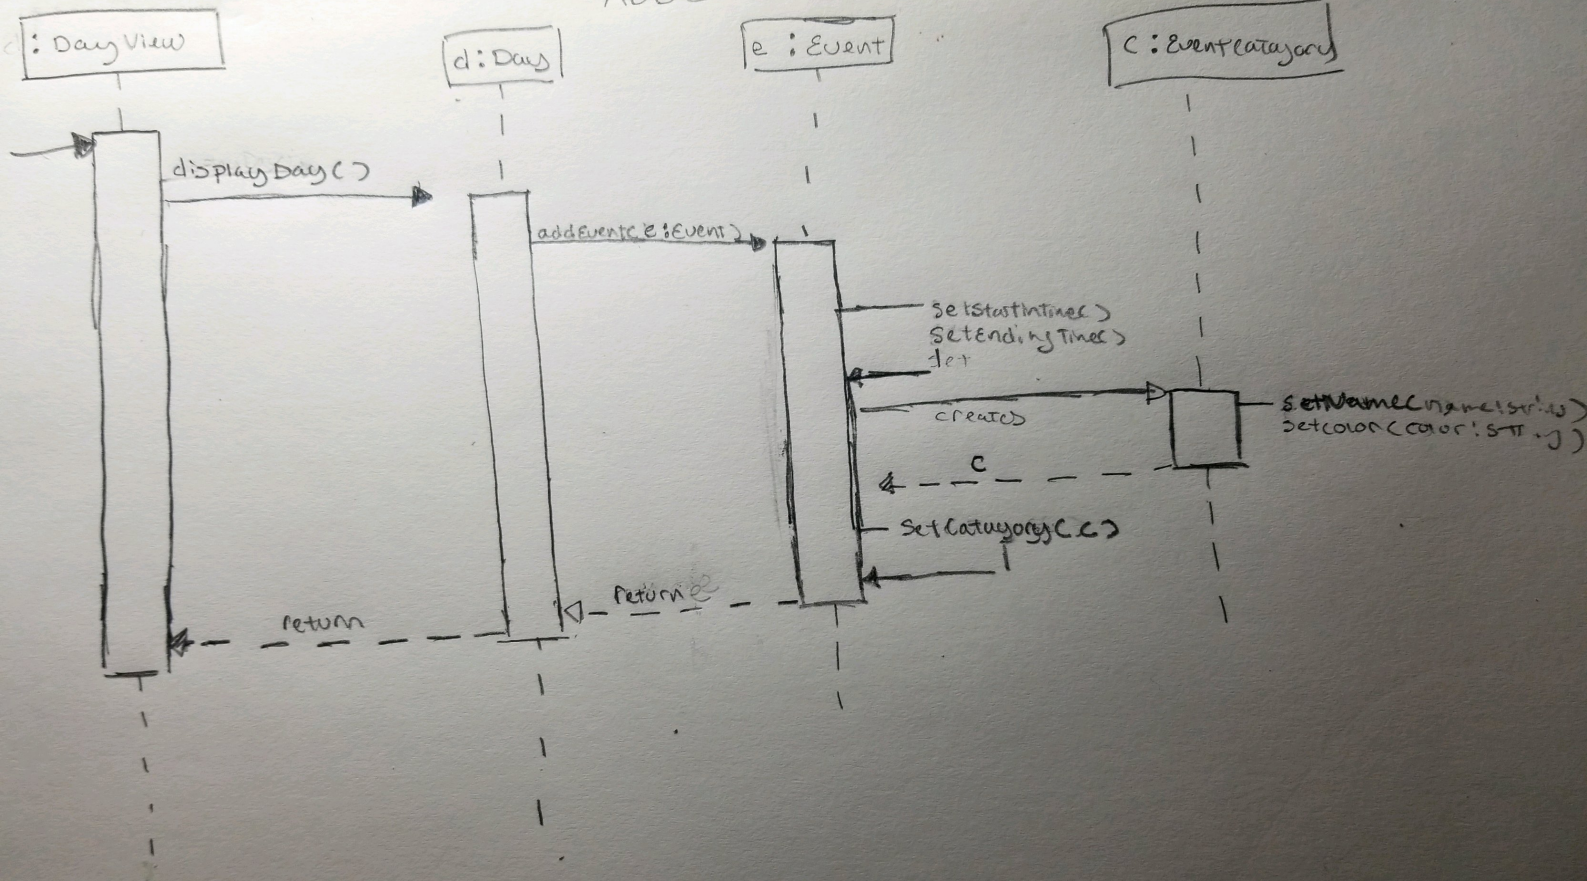 : DayView
d:Day
e : Event
C:EventCatagory
displayDay()
addEvent(e:Event)
setStartinTime()
SetEndingTime()
creates
setName(name:String)
setcolor(color:String)
C
SetCatagory(c)
return e
return